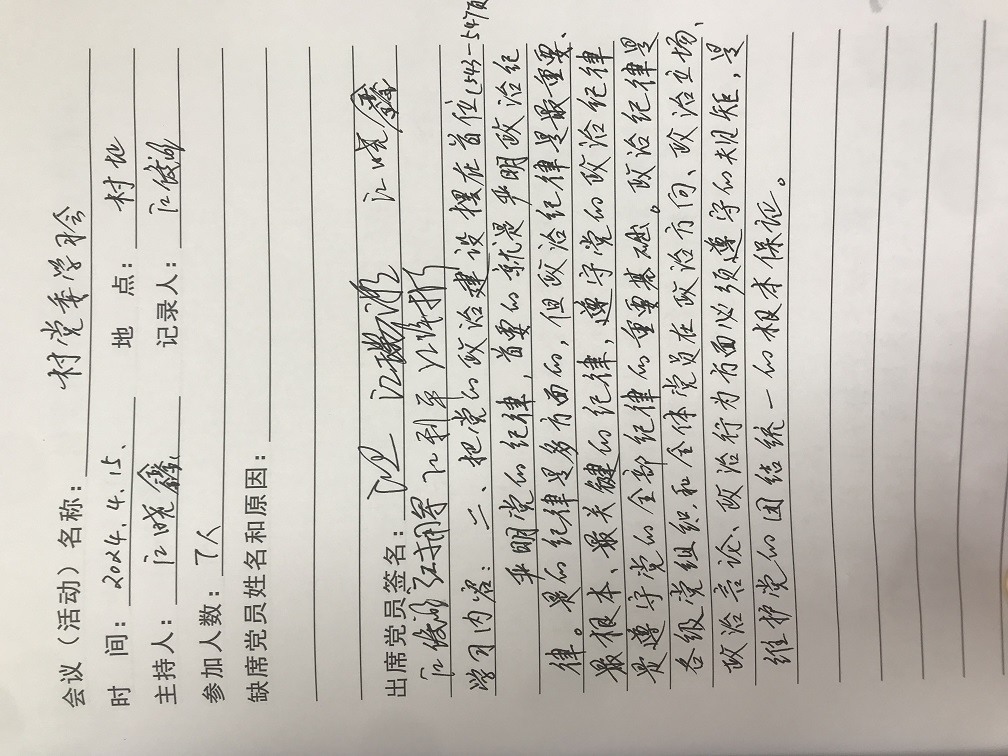 会议（活动）名称：村党委学习会
时 间：2024.4.15. 地 点：村地
主持人：江晓鑫 记录人：江俊湖
参加人数：7人
缺席党员姓名和原因：
出席党员签名：江 江 江晓鑫
江俊湖 江拥军 江利平 江
学习内容：二、把党的政治建设摆在首位（543-547页
严明党的纪律，首要的就是严明政治纪
律。党的纪律是多方面的，但政治纪律是最重要、
最根本、最关键的纪律，遵守党的政治纪律
是遵守党的全部纪律的重要基础。政治纪律是
各级党组织和全体党员在政治方向、政治立场、
政治言论、政治行为方面必须遵守的规矩，是
维护党的团结统一的根本保证。